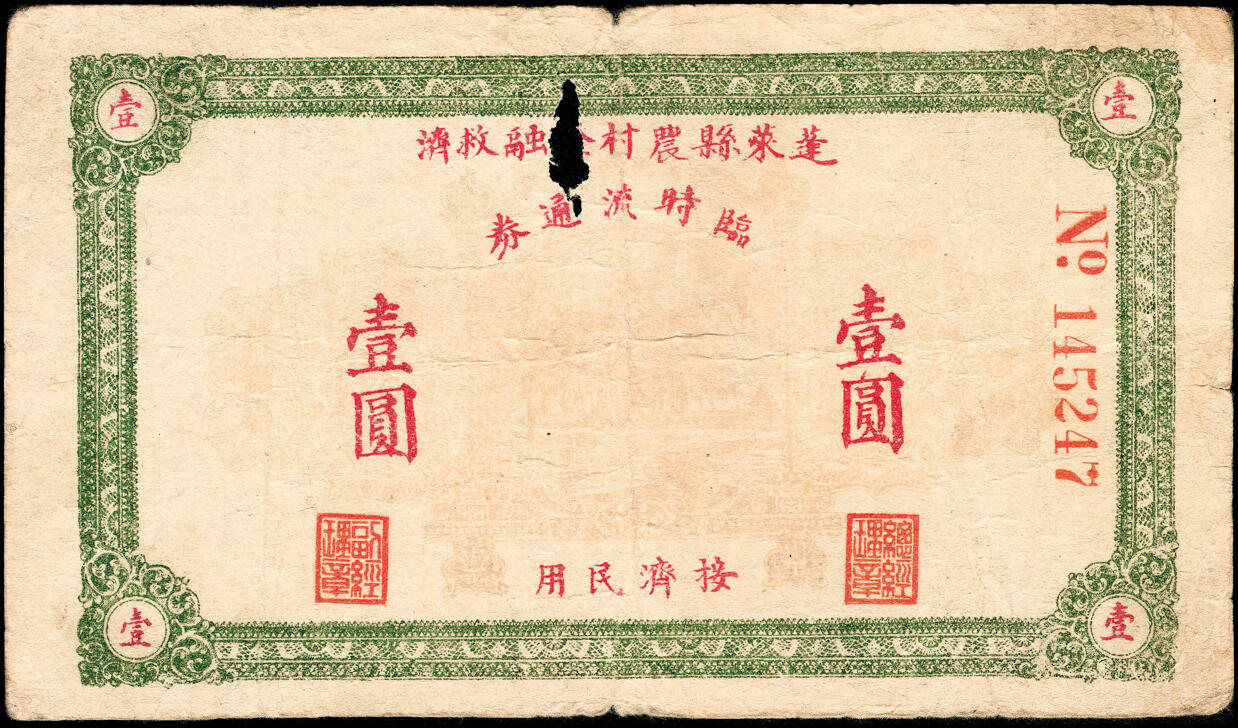 壹
壹
蓬萊縣農村金融救濟
臨時流通券
壹圓
壹圓
No. 145247
總經理章
副經理章
接濟民用
壹
壹